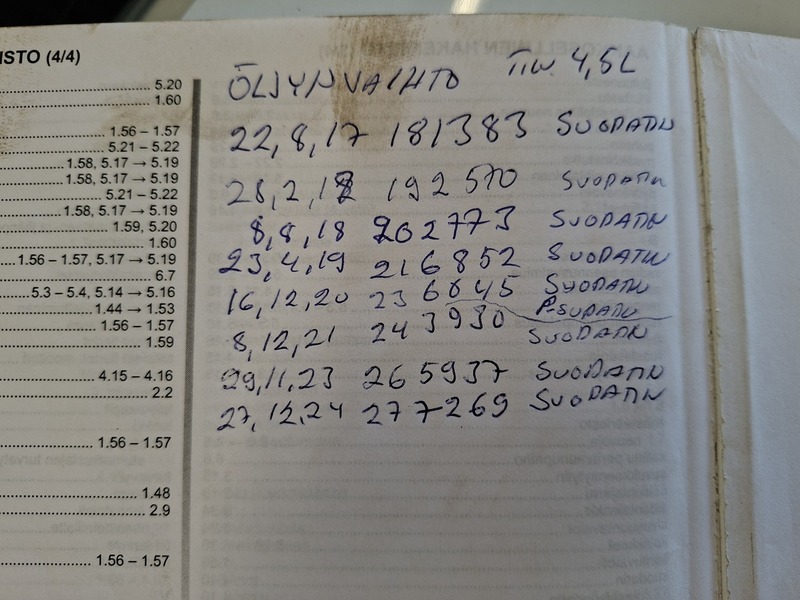 ISTO (4/4)
5.20
1.60
1.56 – 1.57
5.21 – 5.22
1.58, 5.17 → 5.19
1.58, 5.17 → 5.19
5.21 – 5.22
1.58, 5.17 → 5.19
1.59, 5.20
1.60
1.56 – 1.57, 5.17 → 5.19
6.7
5.3 – 5.4, 5.14 → 5.16
1.44 → 1.53
1.56 – 1.57
1.59
4.15 – 4.16
2.2
1.56 – 1.57
1.48
2.9
1.56 – 1.57
ÖLJYNVAIHTO 4,5L
22,8,17 181383 SUODATIN
28,2,18 192570 SUODATIN
8,8,18 202773 SUODATIN
23,4,19 216852 SUODATIN
16,12,20 236645 SUODATIN
P-SUODATIN
8,12,21 243930 SUODATIN
29,11,23 265937 SUODATIN
27,12,24 277269 SUODATIN